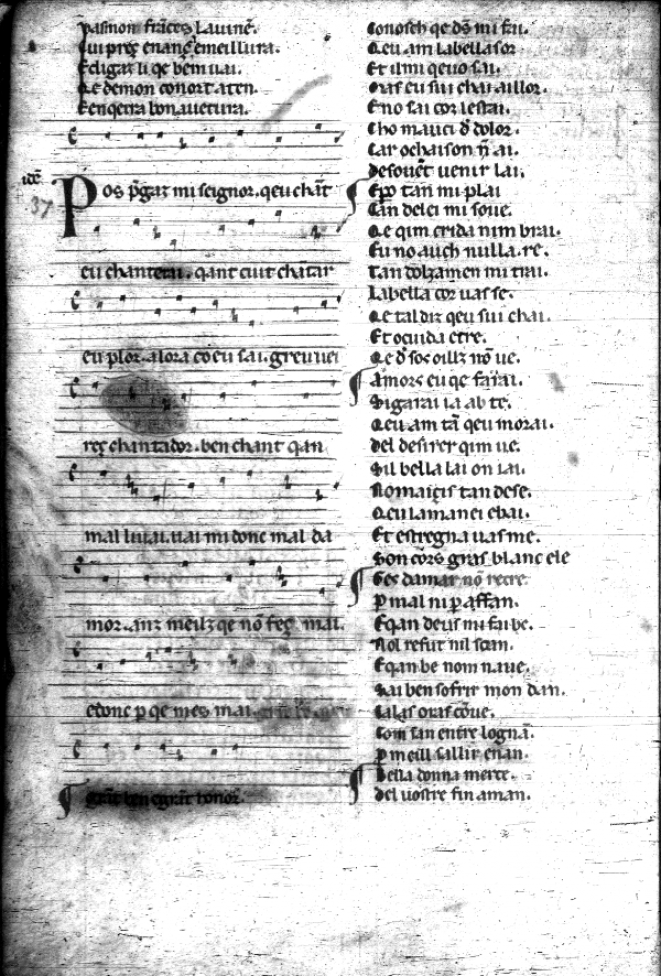 pasmon fràces Lavinẽ.
Lui preȝ enanc̃ emeillura.
E digaz li qe bẽm uai.
Qe demon conort aten.
Eenqera bon auetura.
idẽ
37
Pos p̃gaz mi seignor. qeu chãt
eu chanterai. qant cuit chãtar
eu plor. alora co eu sai. greu uei
reȝ chantador. ben chant qan
mal lui ai. uai mi donc mal da
mor. anz meilȝ qe nõ feȝ mai.
edonc p qe mes mai.
grãt ben egrãt honor.
Conosch qe dš mi fai.
Qeu am labellasor
Et ilmi qeuo sai.
Mas eu sui chai aillor.
E no sai cor lestai.
Cho mauci d̃ dolor.
Car ochaison ñ ai.
De souẽt uenir lai.
Epo tan mi plai
Can delei mi soue.
Qe qim crida nim brai.
Eu no auch nulla. re.
Tan dolzamen mi trai.
Labella cor uas se.
Qe tal diz qeu sui chai.
Et ocuida ecre.
Qe d̃ sos oillz nõ ue.
Amors eu qe farai.
Si garai ia ab te.
Qeu am tã qeu morai.
Del desirer qim ue.
Sil bella lai on iai.
Nomaiçis tan dese.
Qeu lamanei ebai.
Et estregna uas me.
Son cors gras blanc ele
Ges damar nõ recre
P mal ni p affan.
E qan deus mi fai be.
Nol refut nil soan.
E qan be nom naue.
Sai ben sofrir mon dan.
Calas oras cõue.
Com san entre lognã
P meill sallir enan.
Bella donna merce.
Del uostre fin aman.